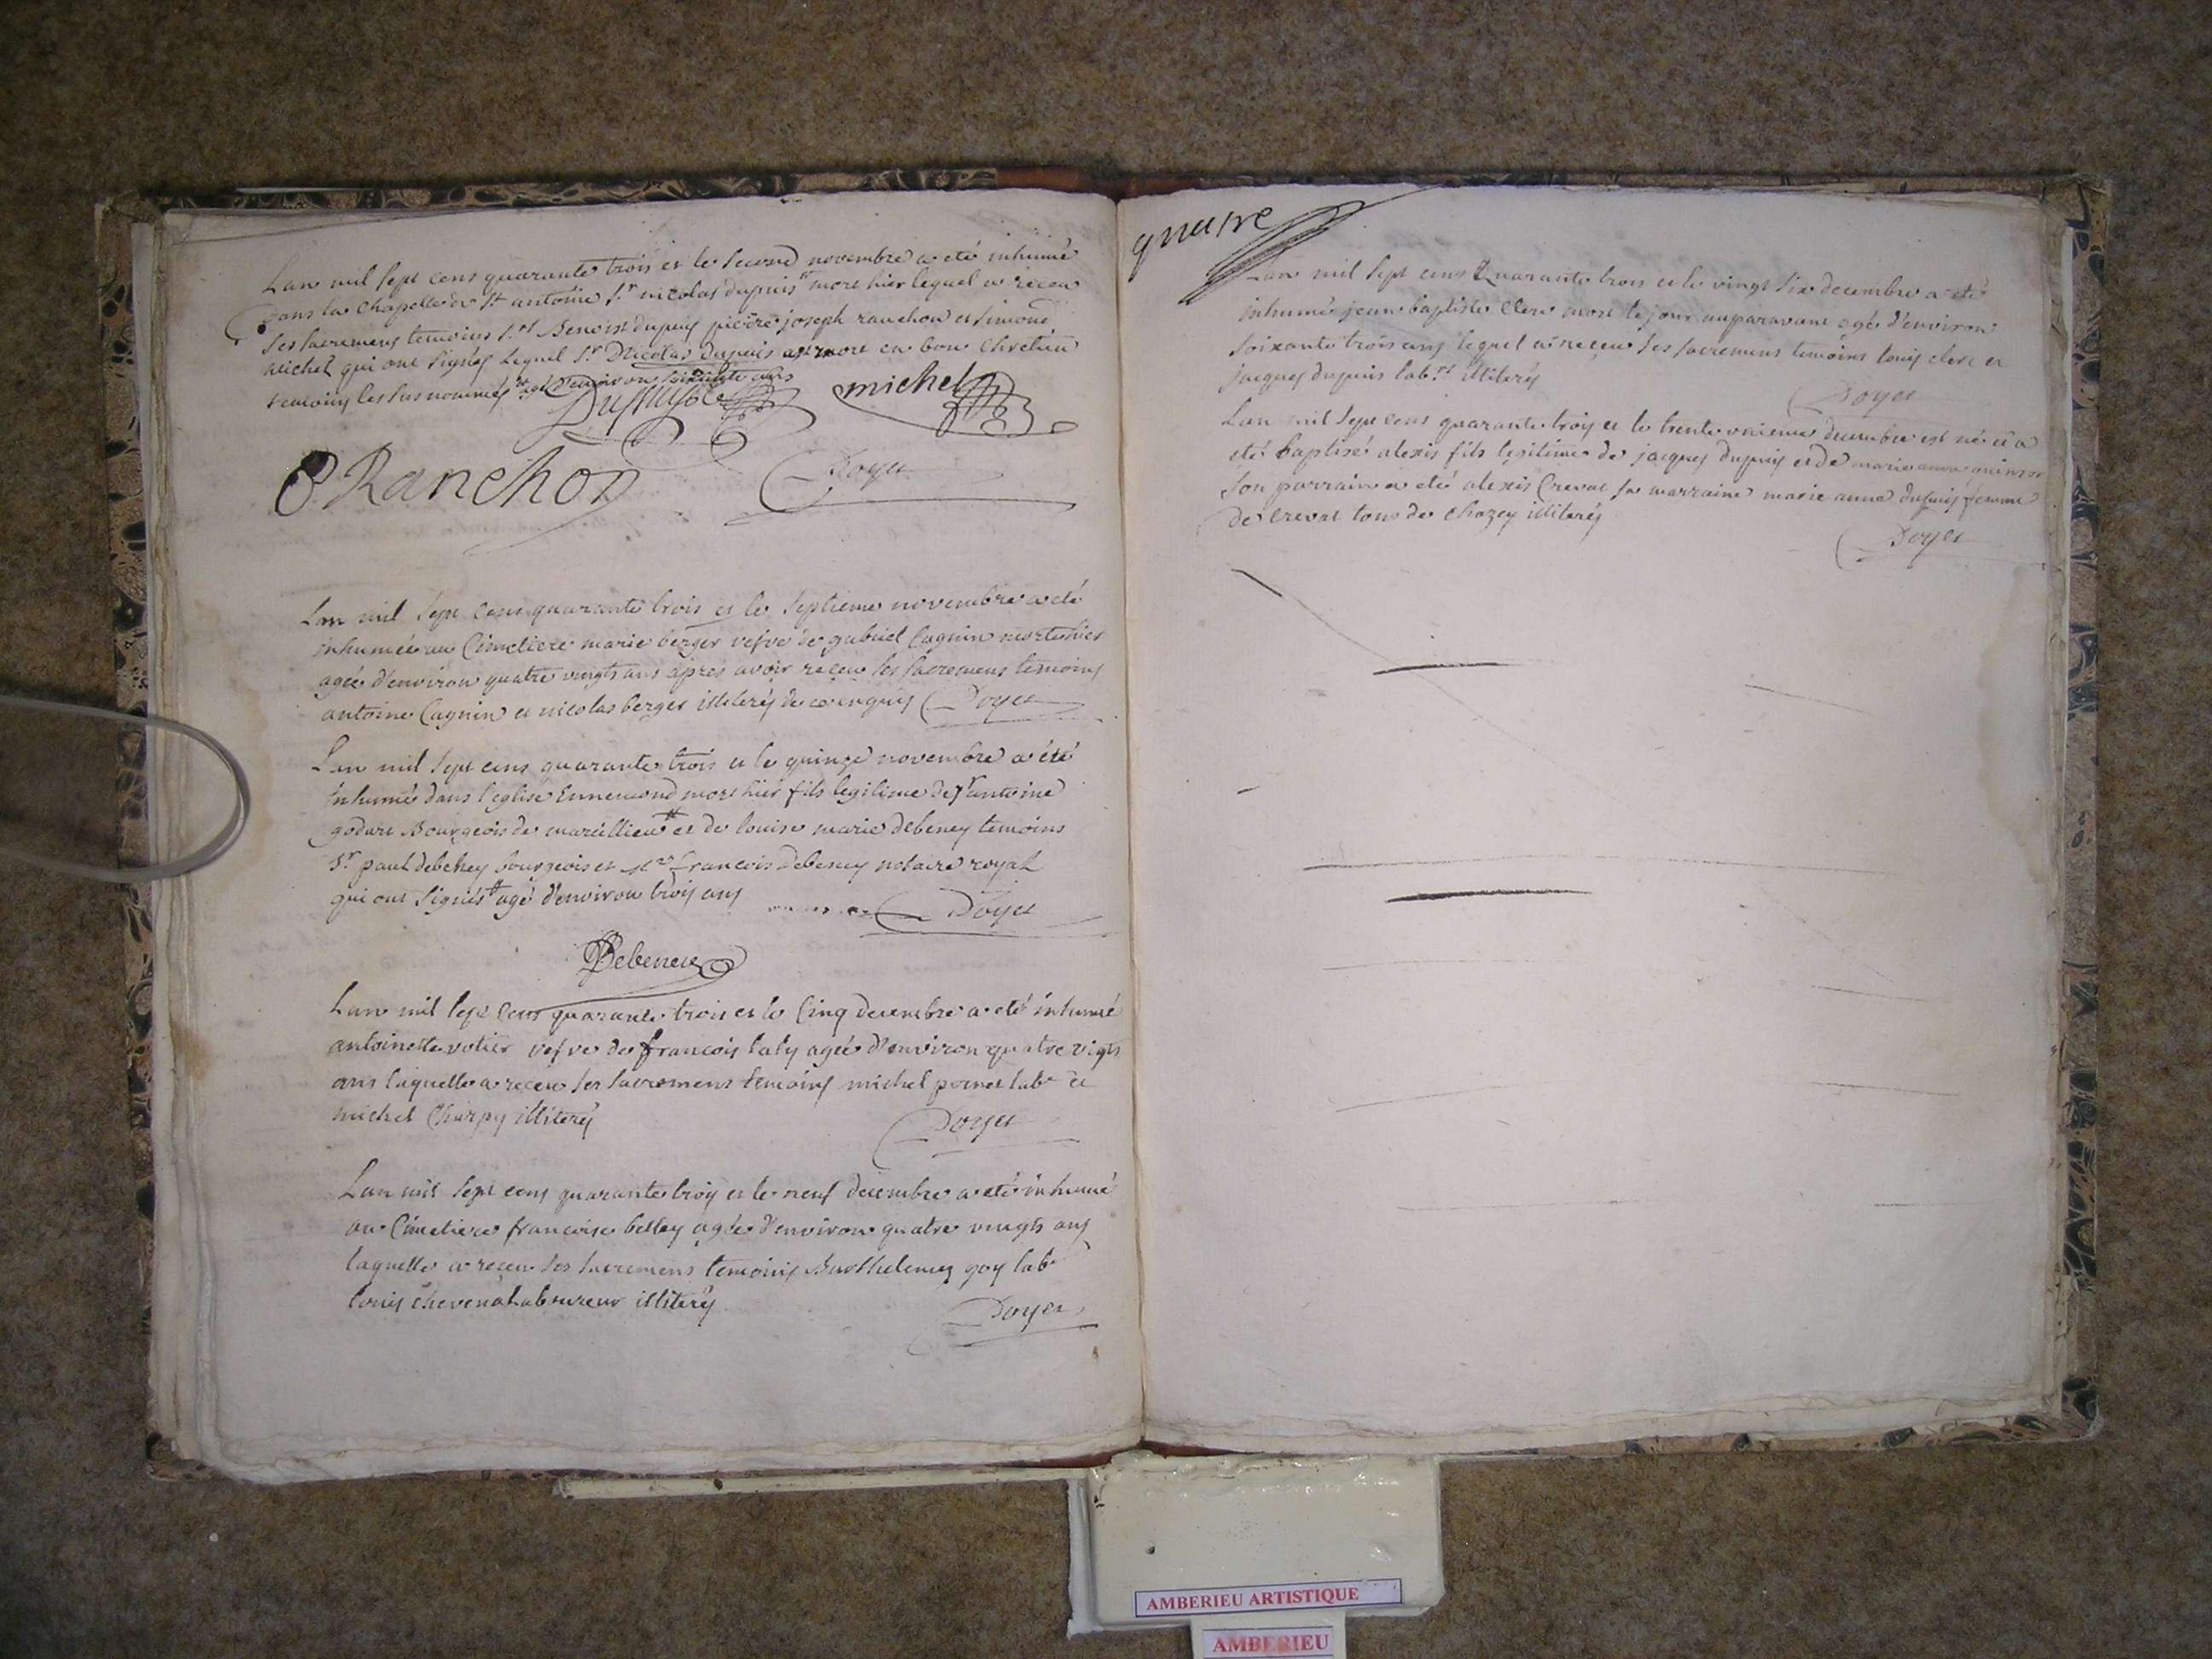 Lan mil sept cens quarante trois et le second novembre a eté inhumé
dans la Chapelle de st antoine Sr nicolas dupuis mort hier lequel a receu
ses sacremens temoins Srs Benoist dupuis pierre joseph ranchon et simond
michel qui ont signés Lequel Sr Nicolas Dupuis est mort en bon Chretien
temoins les sus nommés agé d'environ ans
michel
P. Ranchon
Doyer
Lan mil sept cens quarante trois et le septieme novembre a eté
inhumée au Cimetiere marie berger vefve de gabriel Cagnin morte hier
agée d'environ quatre vingts ans apres avoir receu ses sacremens temoins
antoine Cagnin et nicolas berger illiterés de ce enquis Doyer
Lan mil sept cens quarante trois et le quinze novembre a été
inhumé dans l'eglise Ennemond mort hier fils legitime de Sr antoine
godart Bourgeois de et de louise marie debeney temoins
Sr paul debeney bourgeois et Me francois debeney notaire royal
qui ont signés agé d'environ trois ans
Doyer
Debeney
Lan mil sept cens quarante trois et le Cinq decembre a eté inhumé
antoinette votier vefve de francois laly agée d'environ quatre vigts
ans laquelle a receu ses sacremens temoins michel pernet labr et
michel Charpy illiterés
Doyer
Lan mil sept cens quarante trois et le neuf decembre a eté inhumé
au Cimetiere francoise belley agée d'environ quatre vingts ans
laquelle a receu ses sacremens temoins Barthelemy goy labr
louis chevenat laboureur illiterés
Doyer
quatre
Lan mil sept cens Quarante trois et le vingt six decembre a eté
inhumé jean baptiste Clerc mort le jour auparavant agé d'environ
soixante trois ans lequel a receu ses sacremens temoins louis clerc et
jacques dupuis labrs illiterés
Doyer
Lan mil sept cens quarante trois et le trente unieme decembre est né et a
eté baptisé alexis fils legitime de jacques dupuis et de marie anne
son parrain a eté alexis Crevat sa marraine marie anne dupuis femme
de Crevat tous de Chazey illiterés
Doyer
AMBERIEU ARTISTIQUE
AMBERIEU